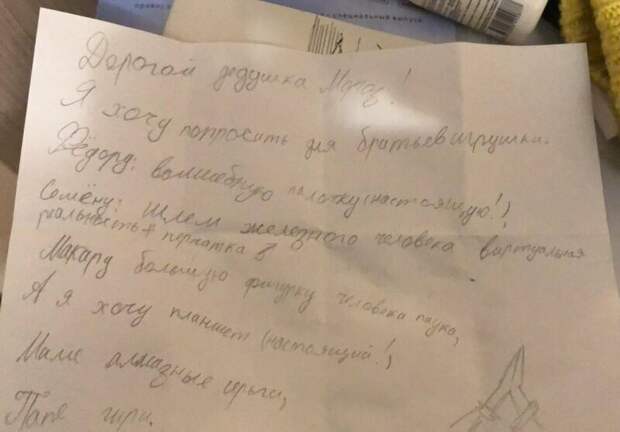 Дорогой дедушка Мороз!
Я хочу попросить для братьев игрушки.
Фёдору: волшебную палочку (настоящую!)
Семёну: Шлем железного человека виртуальная
реальность + перчатка
Макару большую фигурку человека паука,
А я хочу планшет (настоящий!,
Маме алмазные серьги,
Папе гири.